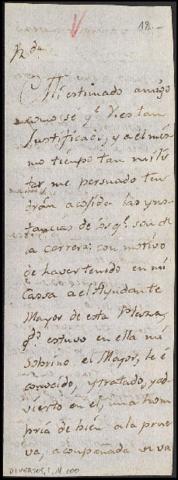 18.
R.da
Mi estimado amigo
como se q.e V.es tan
Justificado, y a el mis-
mo tiempo tan
me persuado ten
drán acojida las yns-
tancias de los q.e son de
la carrera: con motivo
de haver tenido en mi
Cassa a el Ayudante
Mayor de esta Plaza,
q.do estuvo en ella mi
Sobrino el Mayor, le é
conocido, y tratado, y ad
vierto en el, una hom
bria de bien a la prue
va, acompañada de va
DIVERSOS, 1, N.100